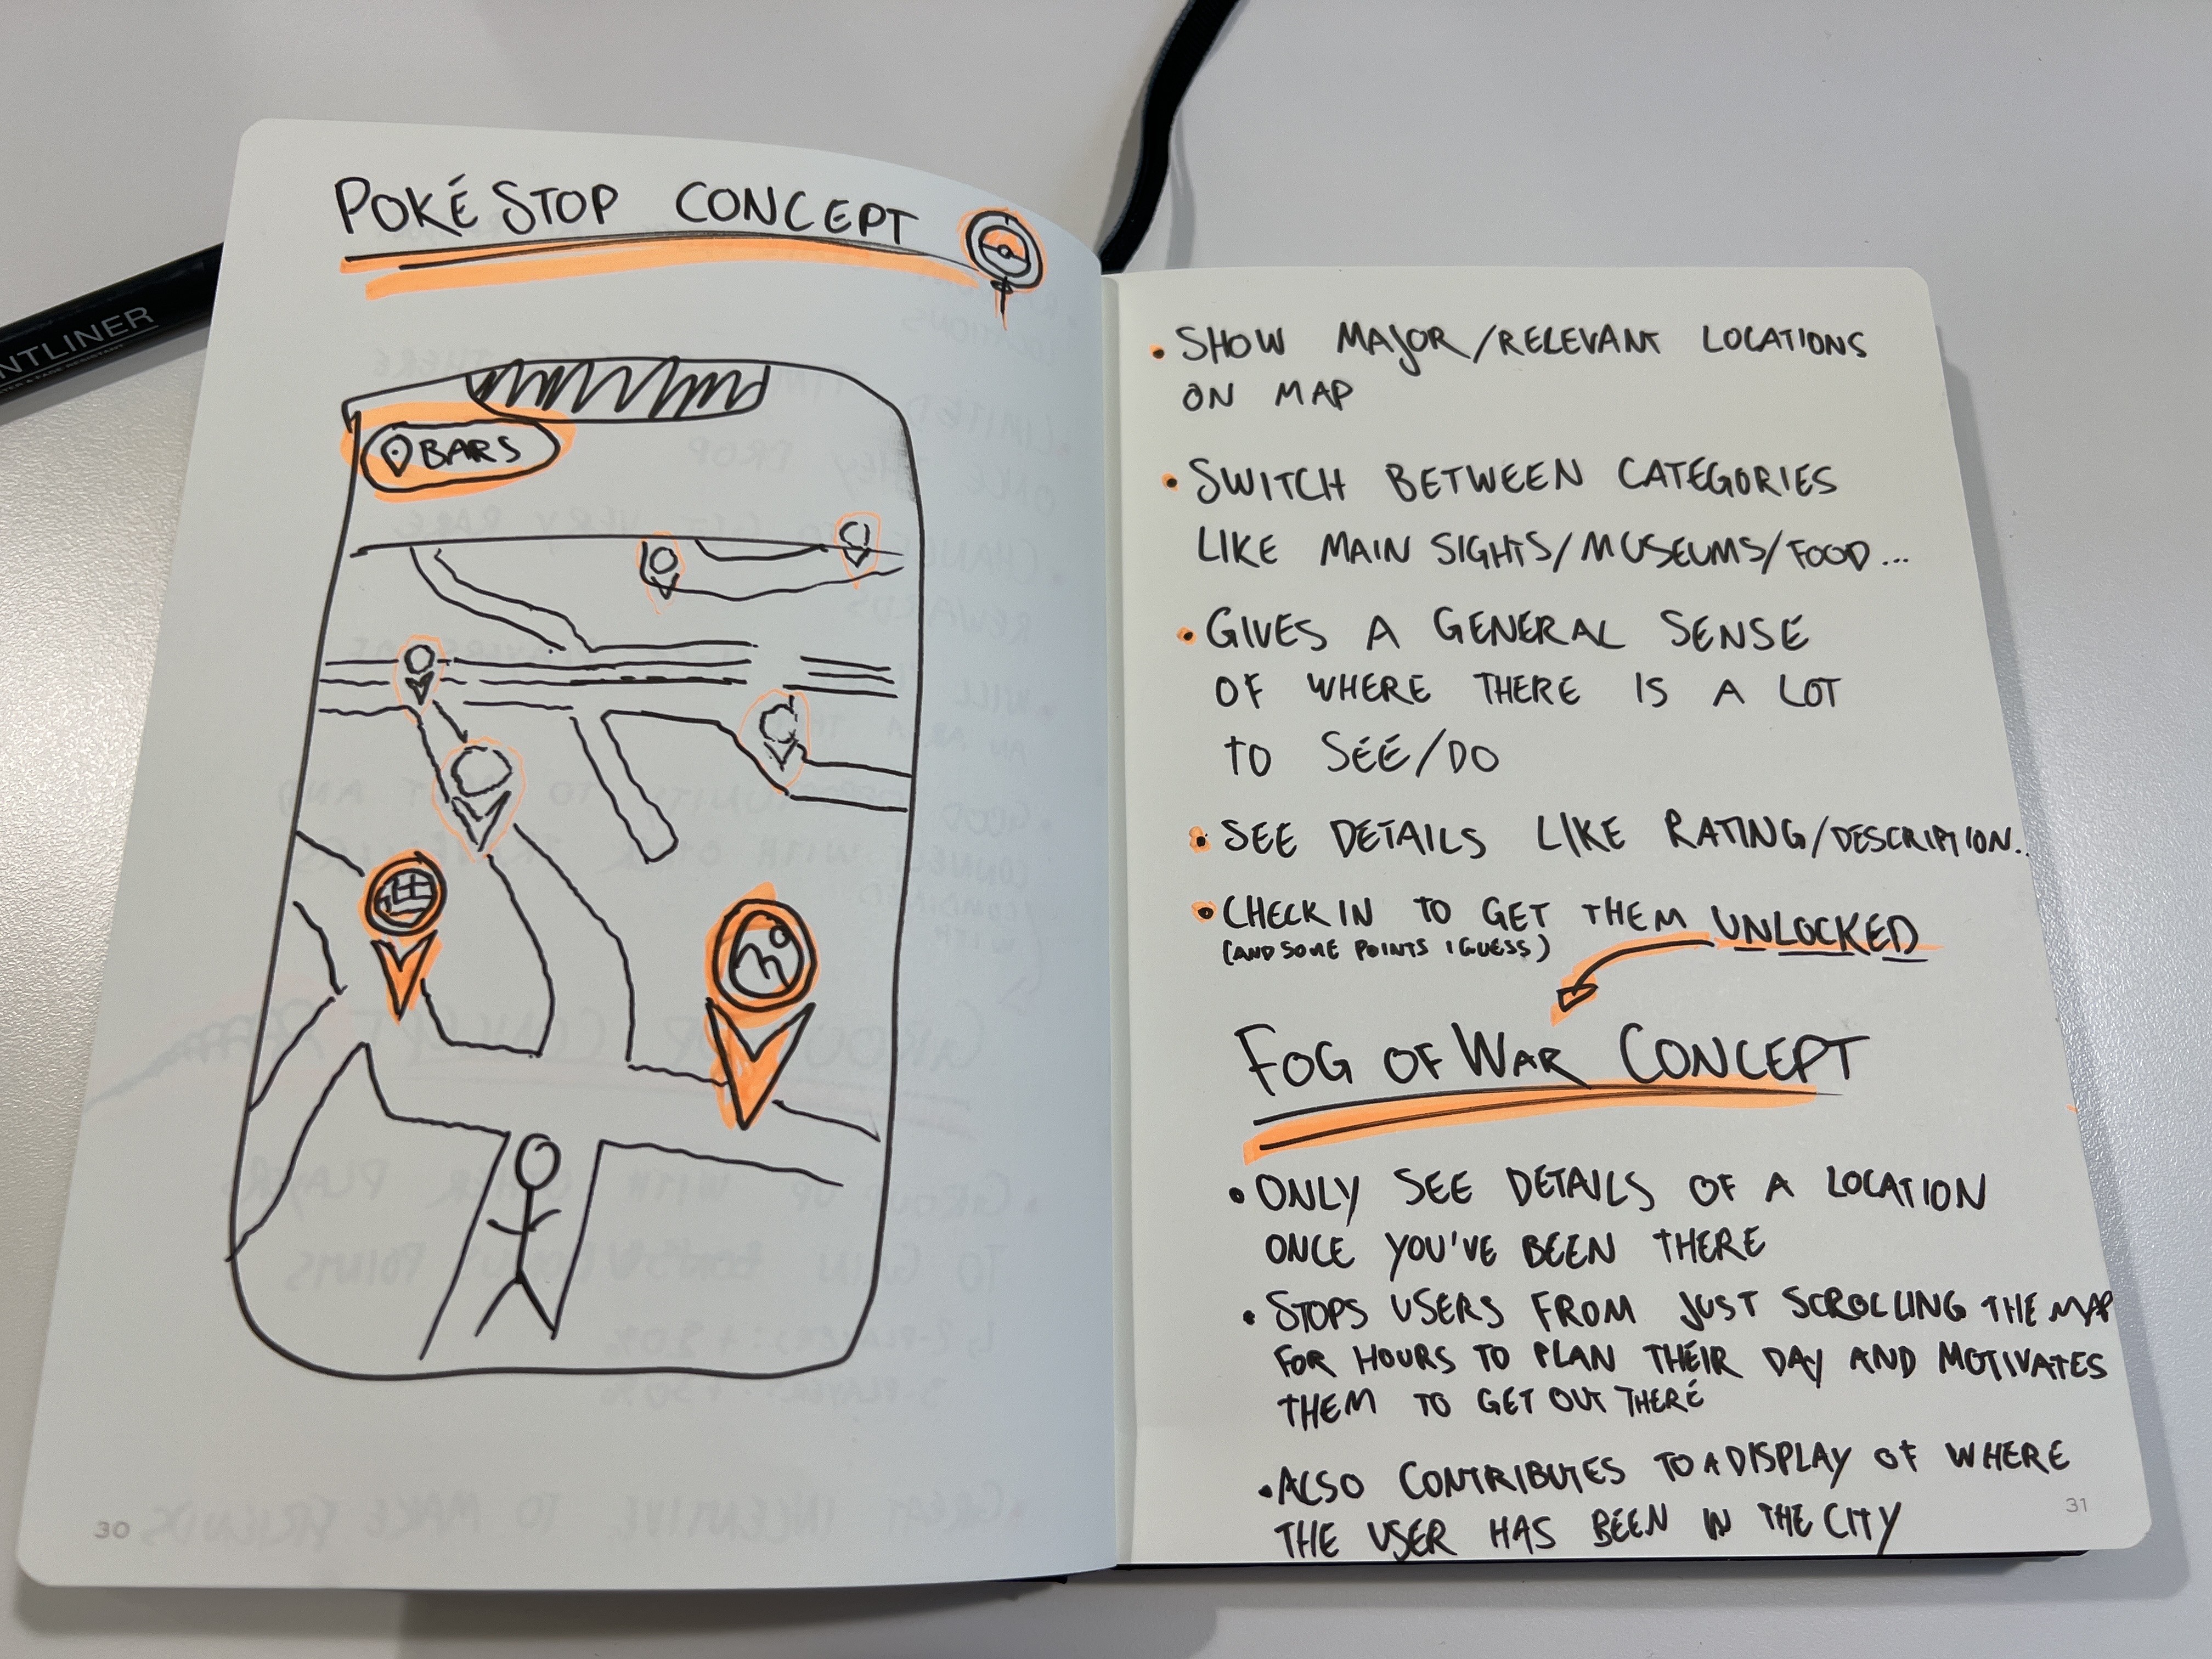 POKÉSTOP CONCEPT
BARS
30
NTLINER
• SHOW MAJOR/RELEVANT LOCATIONS
ON MAP
• SWITCH BETWEEN CATEGORIES
LIKE MAIN SIGHTS/MUSEUMS/FOOD...
• GIVES A GENERAL SENSE
OF WHERE THERE IS A LOT
TO SEE/DO
• SEE DETAILS LIKE RATING/DESCRIPTION..
• CHECK IN TO GET THEM UNLOCKED
(AND SOME POINTS I GUESS)
FOG OF WAR CONCEPT
• ONLY SEE DETAILS OF A LOCATION
ONCE YOU'VE BEEN THERE
• STOPS USERS FROM JUST SCROLLING THE MAP
FOR HOURS TO PLAN THEIR DAY AND MOTIVATES
THEM TO GET OUT THERE
• ALSO CONTRIBUTES TO A DISPLAY OF WHERE
THE USER HAS BEEN IN THE CITY
31